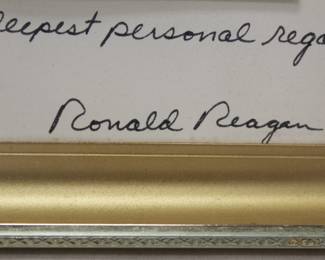 deepest personal rega
Ronald Reagan